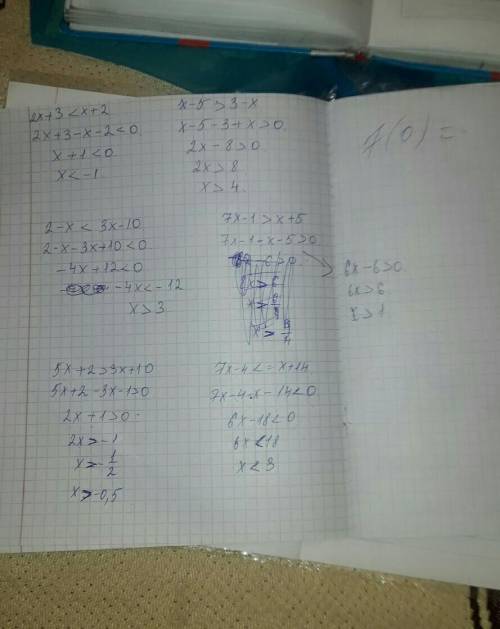 2x+3<x+2
2x+3-x-2<0
x+1<0
x<-1
x-5>3-x
x-5-3+x>0
2x-8>0
2x>8
x>4
f(0)=
2-x<3x-10
2-x-3x+10<0
-4x+12<0
-4x<-12
x>3
7x-1>x+5
7x-1-x-5>0
6x-6>0
6x>6
x>1
5x+2>3x+10
5x+2-3x-1>0
2x+1>0
2x>-1
x>-1/2
x>-0,5
7x-4<=x+14
7x-4-x-14<0
6x-18<0
6x<18
x<3